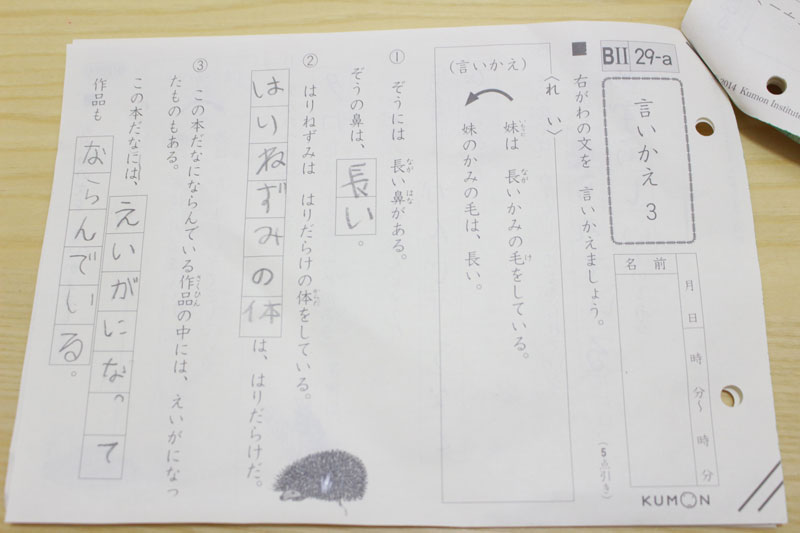 2014 Kumon Institut
BII 29-a
言いかえ 3
月 日 時 分〜 時 分
名前
KUMON
■ 右がわの文を 言いかえましょう。
(5点引き)
〈れい〉
妹は 長いかみの毛をしている。
(言いかえ)
妹のかみの毛は、長い。
① ぞうには 長い鼻がある。
ぞうの鼻は、長い。
② はりねずみは はりだらけの体をしている。
はいねずみの体は、はりだらけだ。
③ この本だなにならんでいる作品の中には、えいがになっ
たものもある。
この本だなには、えいがになって
作品も ならんでいる。